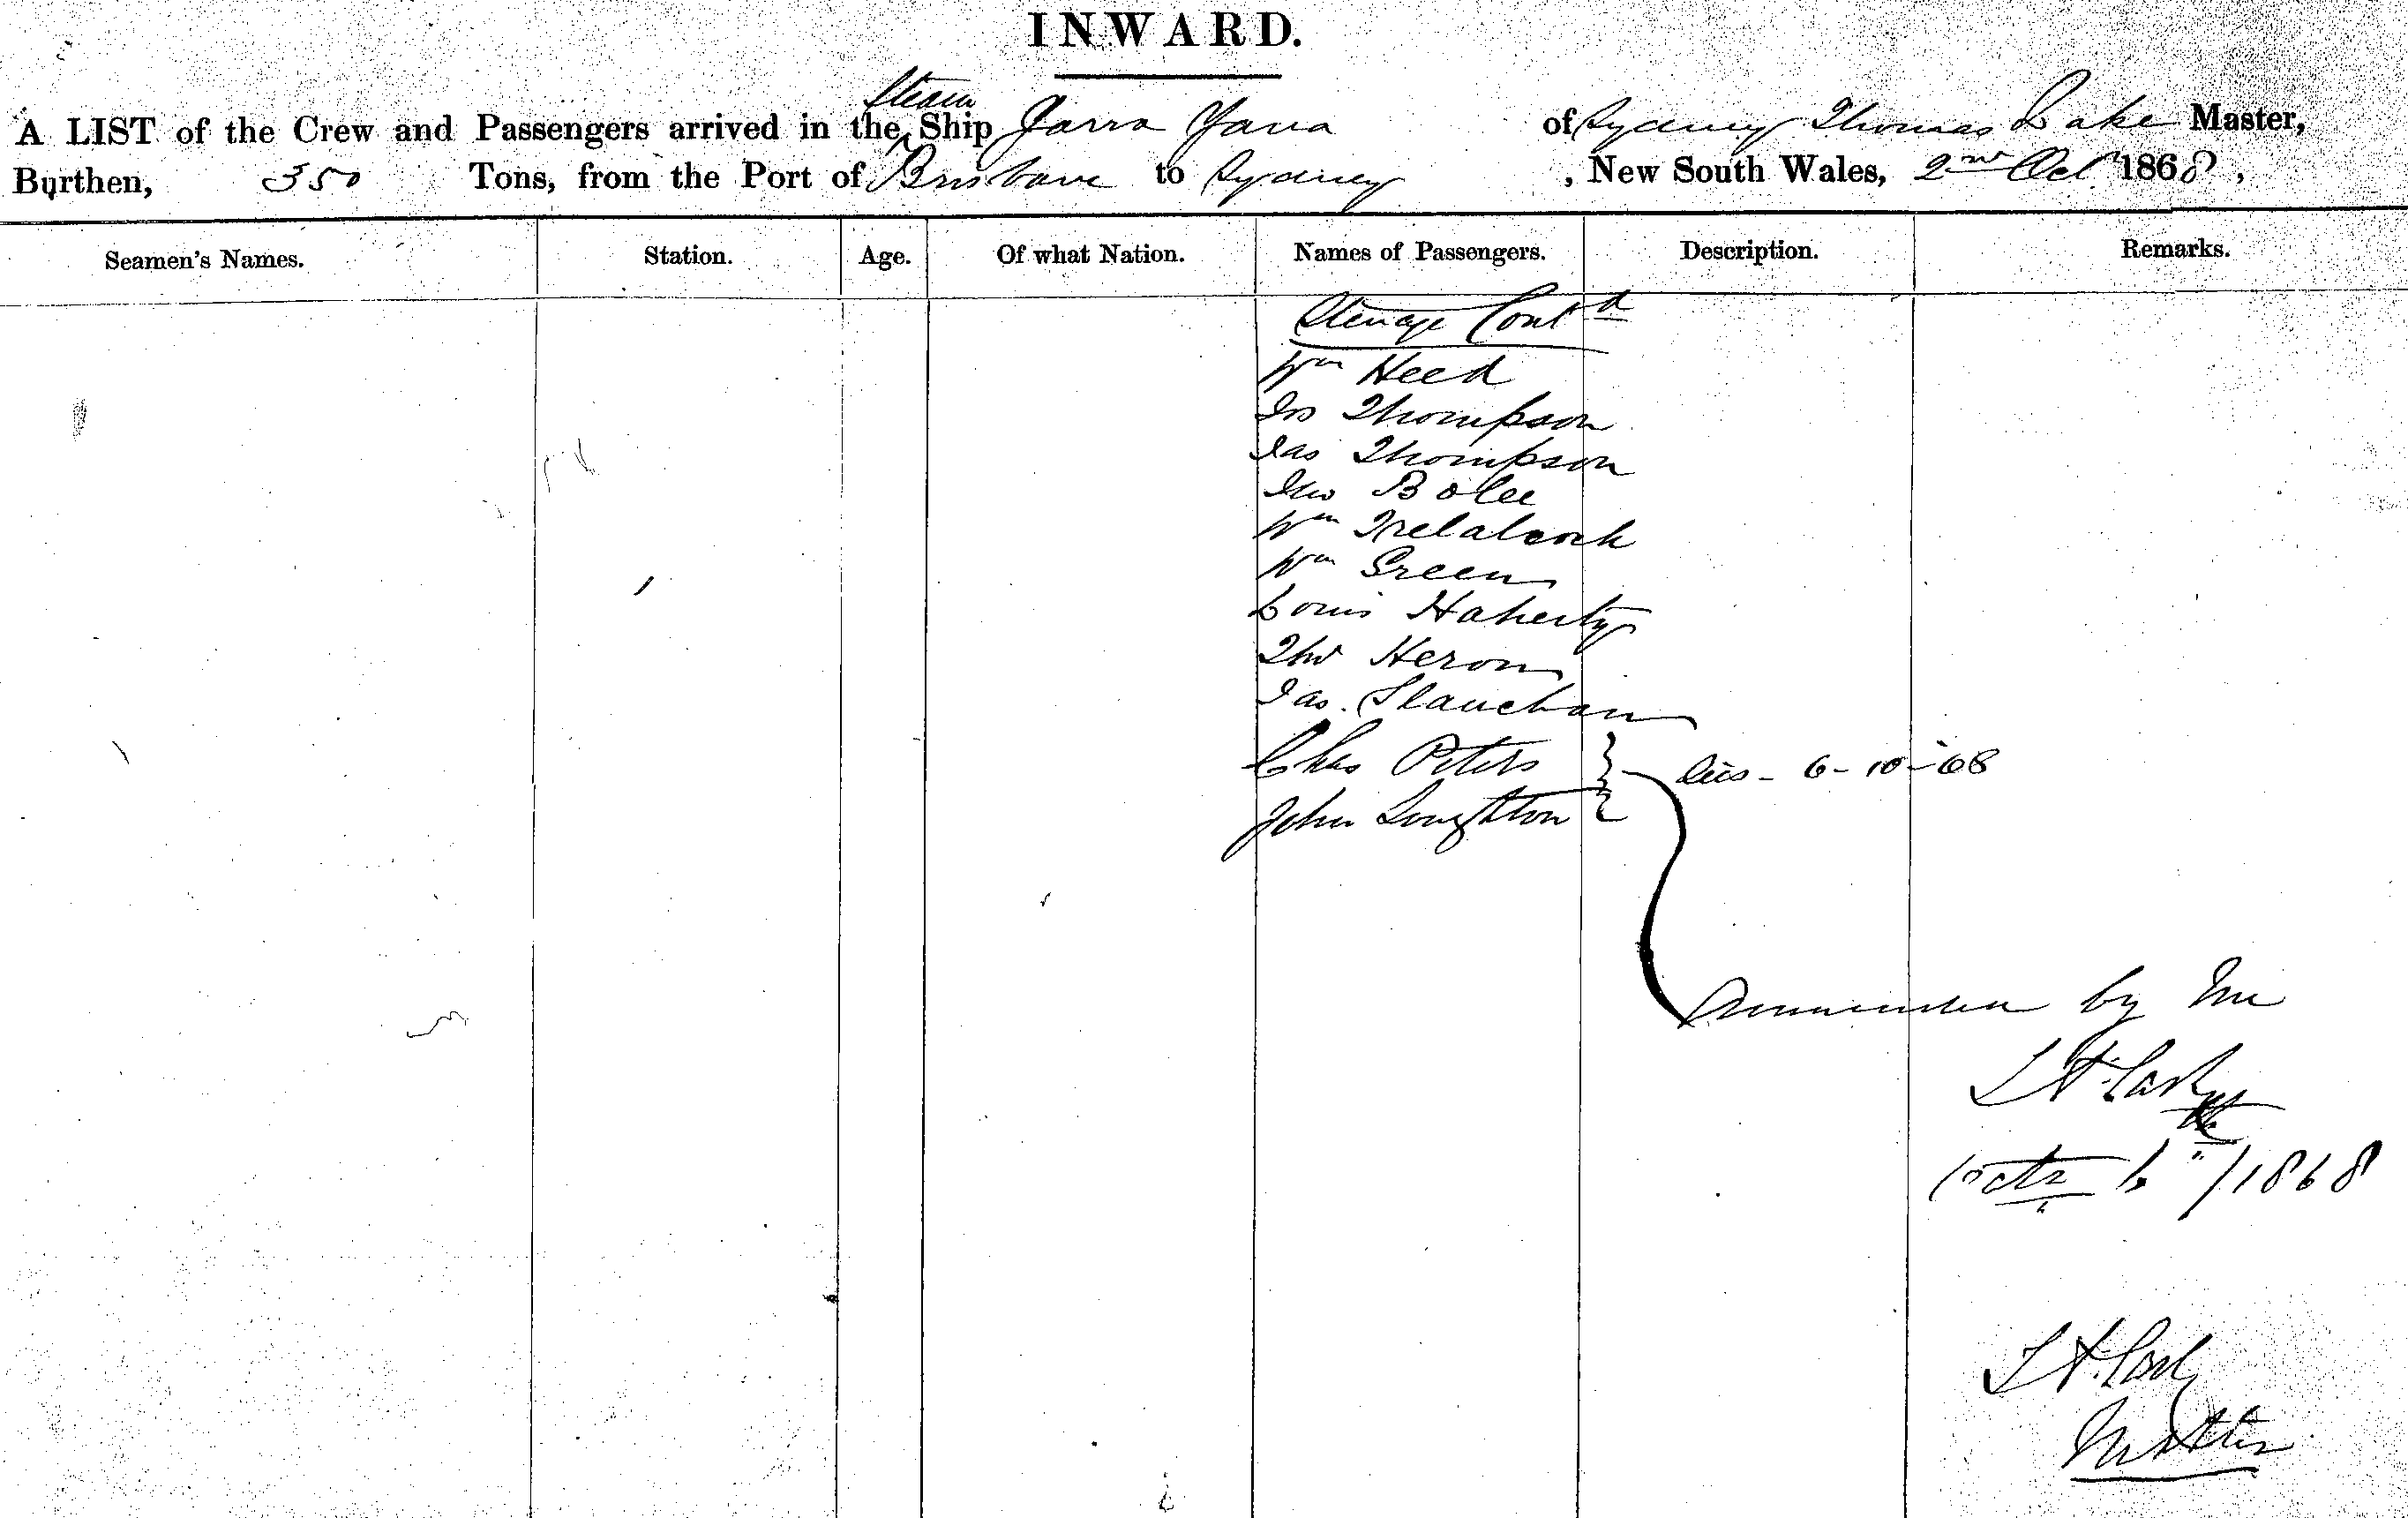 INWARD.
A LIST of the Crew and Passengers arrived in the Steam Ship Yarra Yarra of Sydney Thomas Lake Master,
Burthen, 350 Tons, from the Port of Brisbane to Sydney , New South Wales, 2nd Oct 1868,
Seamen's Names. Station. Age. Of what Nation. Names of Passengers. Description. Remarks.
Steerage Contd
Wm Heed
Jos Thompson
Jas Thompson
Jno
Wm Trelalcock
Wm Green
Louis Haherty
Thos Heron
Jas. Slauchan
Chas Peters
John Loughton
6-10-68
by Me
Octr 6th/1868
Master